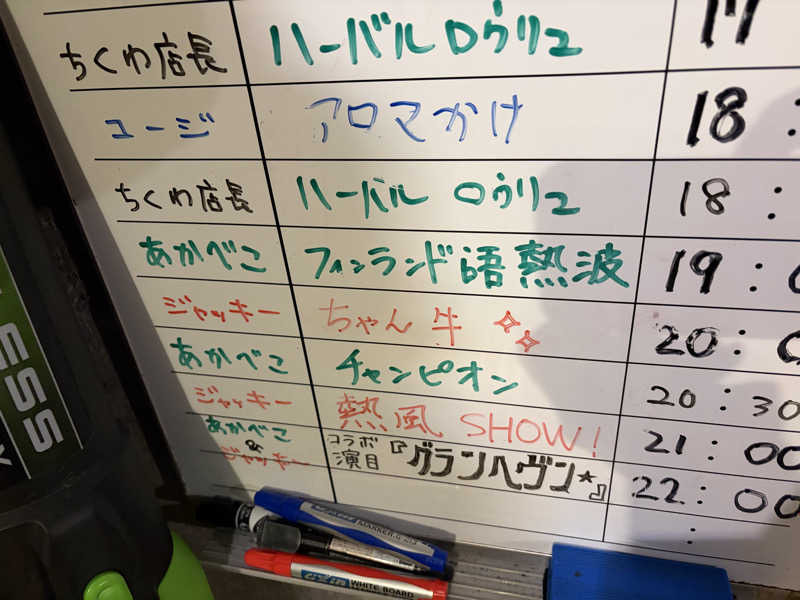 ちくわ店長 ハーバルロウリュ 17
ユージ アロマかけ 18:
ちくわ店長 ハーバル ロウリュ 18:
あかべこ フィンランド語熱波 19:0
ジャッキー ちゃん牛 20:0
あかべこ チャンピオン 20:30
ジャッキー 熱風 SHOW! 21:00
あかべこ & ジャッキー コラボ演目『グランヘヴン☆』 22:00
:
ESS
MARKER
WHITE BOARD